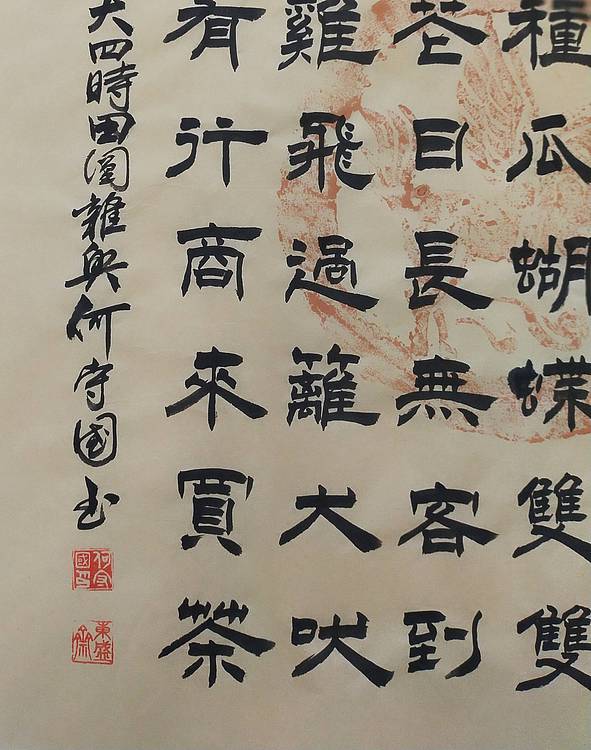 種瓜蝴蝶雙雙
花日長無客到
雞飛過籬犬吠
有行商來買茶
大四時田園雜興何守國书
何守國印
東盛齋